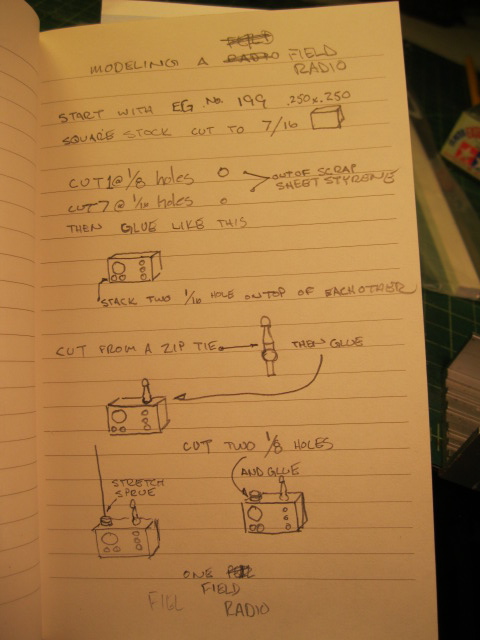 MODELING A FIELD
RADIO
START WITH EG No. 199 .250x.250
SQUARE STOCK CUT TO 7/16
CUT 1 @ 1/8 holes
OUT OF SCRAP
SHEET STYRENE
CUT 7 @ 1/16 holes
THEN GLUE LIKE THIS
STACK TWO 1/16 HOLE ON TOP OF EACH OTHER
CUT FROM A ZIP TIE
THEN GLUE
CUT TWO 1/8 HOLES
AND GLUE
STRETCH
SPRUE
ONE
FIELD
FIEL RADIO